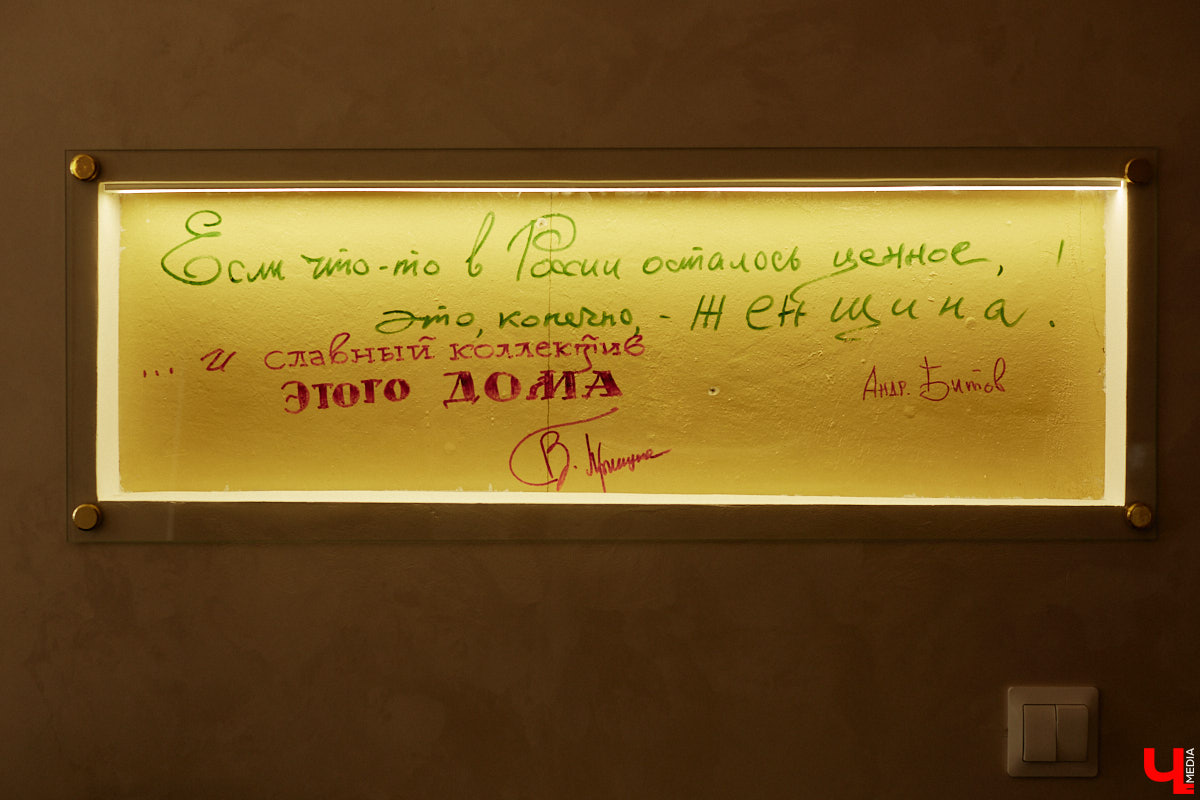 Если что-то в России осталось ценное,
это, конечно, - Женщина.
... и славный коллектив
этого ДОМА
Андр. Битов
В.
Ч MEDIA